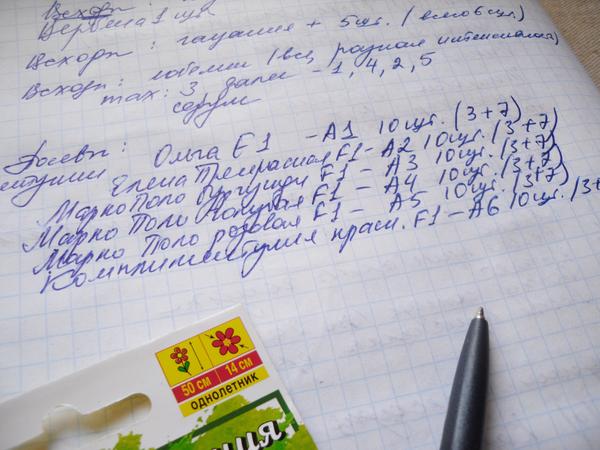 Всхож
Вербена 1 шт
Всхож: гацания + 5шт. (всего 6 шт.)
Всхож: лобелии (все, разная интенсивная)
max: 3, далее - 1, 4, 2, 5
Посевы: Ольга F1 - A1 10 шт. (3+7)
Елена Прекрасная F1 - A2 10 шт. (3+7)
Марко Поло F1 - A3 10 шт. (3+7)
Марко Поло F1 - A4 10 шт. (3+7)
Марко Поло розовая F1 - A5 10 шт. (3+7)
Комплиментуния красн. F1 - A6 10 шт. (3+
50 см 14 см
однолетник